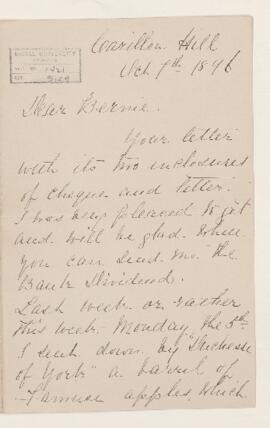 McGILL UNIVERSITY
Carillon, Hill
Oct. 7th 1896
Dear Bernie.
Your letter
with its two enclosures
of cheque and letter.
I was very pleased to get
and will be glad when
you can send me the
Bank Dividend.
Last week or rather
this week. Monday the 5th
I sent down by "Duchesse
of York" a barrel of
Famuse apples, which